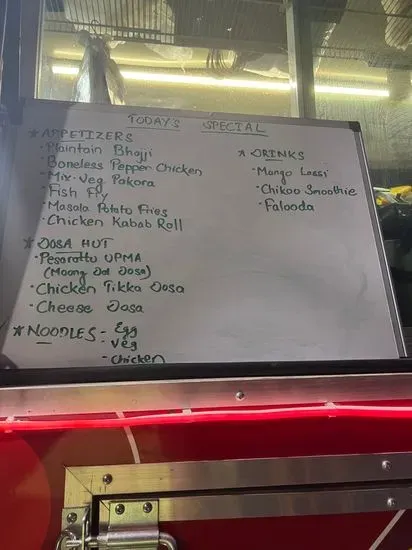 TODAY'S SPECIAL
* APPETIZERS
· Plaintain Bhajji
· Boneless Pepper Chicken
· Mix-Veg Pakora
· Fish Fry
· Masala Potato Fries
· Chicken Kabab Roll
* DOSA HUT
· Pesarattu UPMA
(Moong Dal Dosa)
· Chicken Tikka Dosa
· Cheese Dosa
* NOODLES - Egg
- Veg
- Chicken
* DRINKS
· Mango Lassi
· Chikoo Smoothie
· Falooda